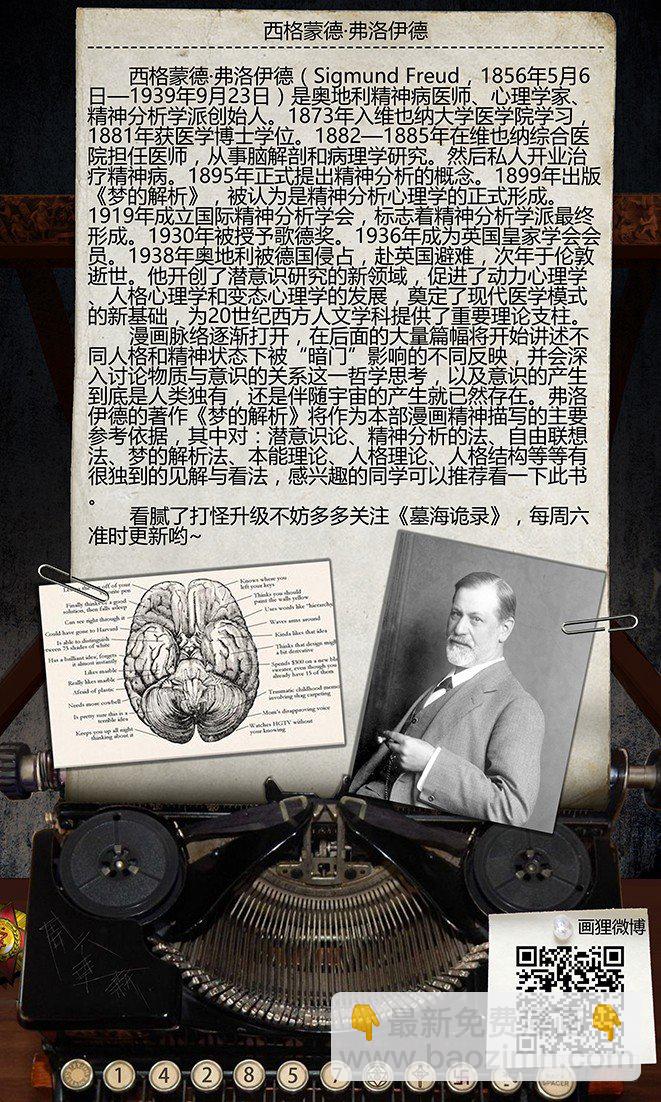 西格蒙德·弗洛伊德
西格蒙德·弗洛伊德（Sigmund Freud，1856年5月6
日—1939年9月23日）是奥地利精神病医师、心理学家、
精神分析学派创始人。1873年入维也纳大学医学院学习，
1881年获医学博士学位。1882—1885年在维也纳综合医
院担任医师，从事脑解剖和病理学研究。然后私人开业治
疗精神病。1895年正式提出精神分析的概念。1899年出版
《梦的解析》，被认为是精神分析心理学的正式形成。
1919年成立国际精神分析学会，标志着精神分析学派最终
形成。1930年被授予歌德奖。1936年成为英国皇家学会会
员。1938年奥地利被德国侵占，赴英国避难，次年于伦敦
逝世。他开创了潜意识研究的新领域，促进了动力心理学
、人格心理学和变态心理学的发展，奠定了现代医学模式
的新基础，为20世纪西方人文学科提供了重要理论支柱。
漫画脉络逐渐打开，在后面的大量篇幅将开始讲述不
同人格和精神状态下被“暗门”影响的不同反映，并会深
入讨论物质与意识的关系这一哲学思考，以及意识的产生
到底是人类独有，还是伴随宇宙的产生就已然存在。弗洛
伊德的著作《梦的解析》将作为本部漫画精神描写的主要
参考依据，其中对：潜意识论、精神分析的法、自由联想
法、梦的解析法、本能理论、人格理论、人格结构等等有
很独到的见解与看法，感兴趣的同学可以推荐看一下此书
。
看腻了打怪升级不妨多多关注《墓海诡录》，每周六
准时更新哟~
off of your
pen
Finally thinks of a good
solution, then falls asleep
Can see right through it
Could have gone to Harvard
Is able to distinguish
between 75 shades of white
Has a brilliant idea, forgets
it almost instantly
Likes marble
Really likes marble
Afraid of plastic
Needs more cowbell
Is pretty sure this is a
terrible idea
Keeps you up all night
thinking about it
Knows where you
left your keys
Thinks you should
paint the walls yellow
Uses words like "hierarchy
Waves arms around
Kinda likes that idea
Thinks that design might
a bit derivative
Spends $300 on a new
sweater, even though you
already have 15 of them
Traumatic childhood
involving shag carpeting
Mom's disapproving voice
Watches HGTV without
your knowing
画狸微博
最新免费
www.baozimh.com
1 4 2 8 5 7
SPACER